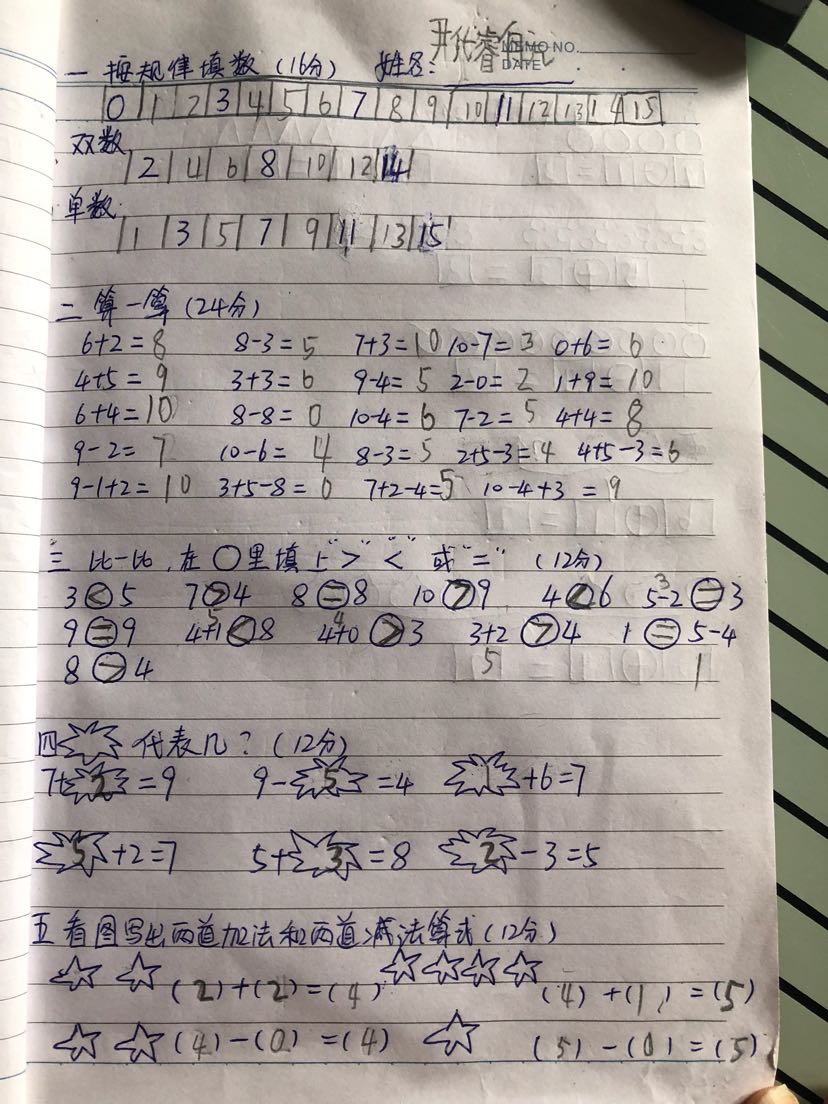 一 按规律填数（16分） 姓名：
MEMO NO.
DATE
0 1 2 3 4 5 6 7 8 9 10 11 12 13 14 15
双数
2 4 6 8 10 12 14
单数
1 3 5 7 9 11 13 15
二 算一算（24分）
6+2=8 8-3=5 7+3=10 10-7=3 0+6=6
4+5=9 3+3=6 9-4=5 2-0=2 1+9=10
6+4=10 8-8=0 10-4=6 7-2=5 4+4=8
9-2=7 10-6=4 8-3=5 2+5-3=4 4+5-3=6
9-1+2=10 3+5-8=0 7+2-4=5 10-4+3=9
三 比一比，在○里填上“>”“<”或“=”（12分）
3<5 7>4 8=8 10>9 4<6 5-2=3
9=9 4+1<8 4+0>3 3+2>4 1=5-4
8>4
四 代表几？（12分）
7+2=9 9-5=4 1+6=7
5+2=7 5+3=8 2-3=5
五 看图写出两道加法和两道减法算式（12分）
(2)+(2)=(4) (4)+(1)=(5)
(4)-(0)=(4) (5)-(0)=(5)